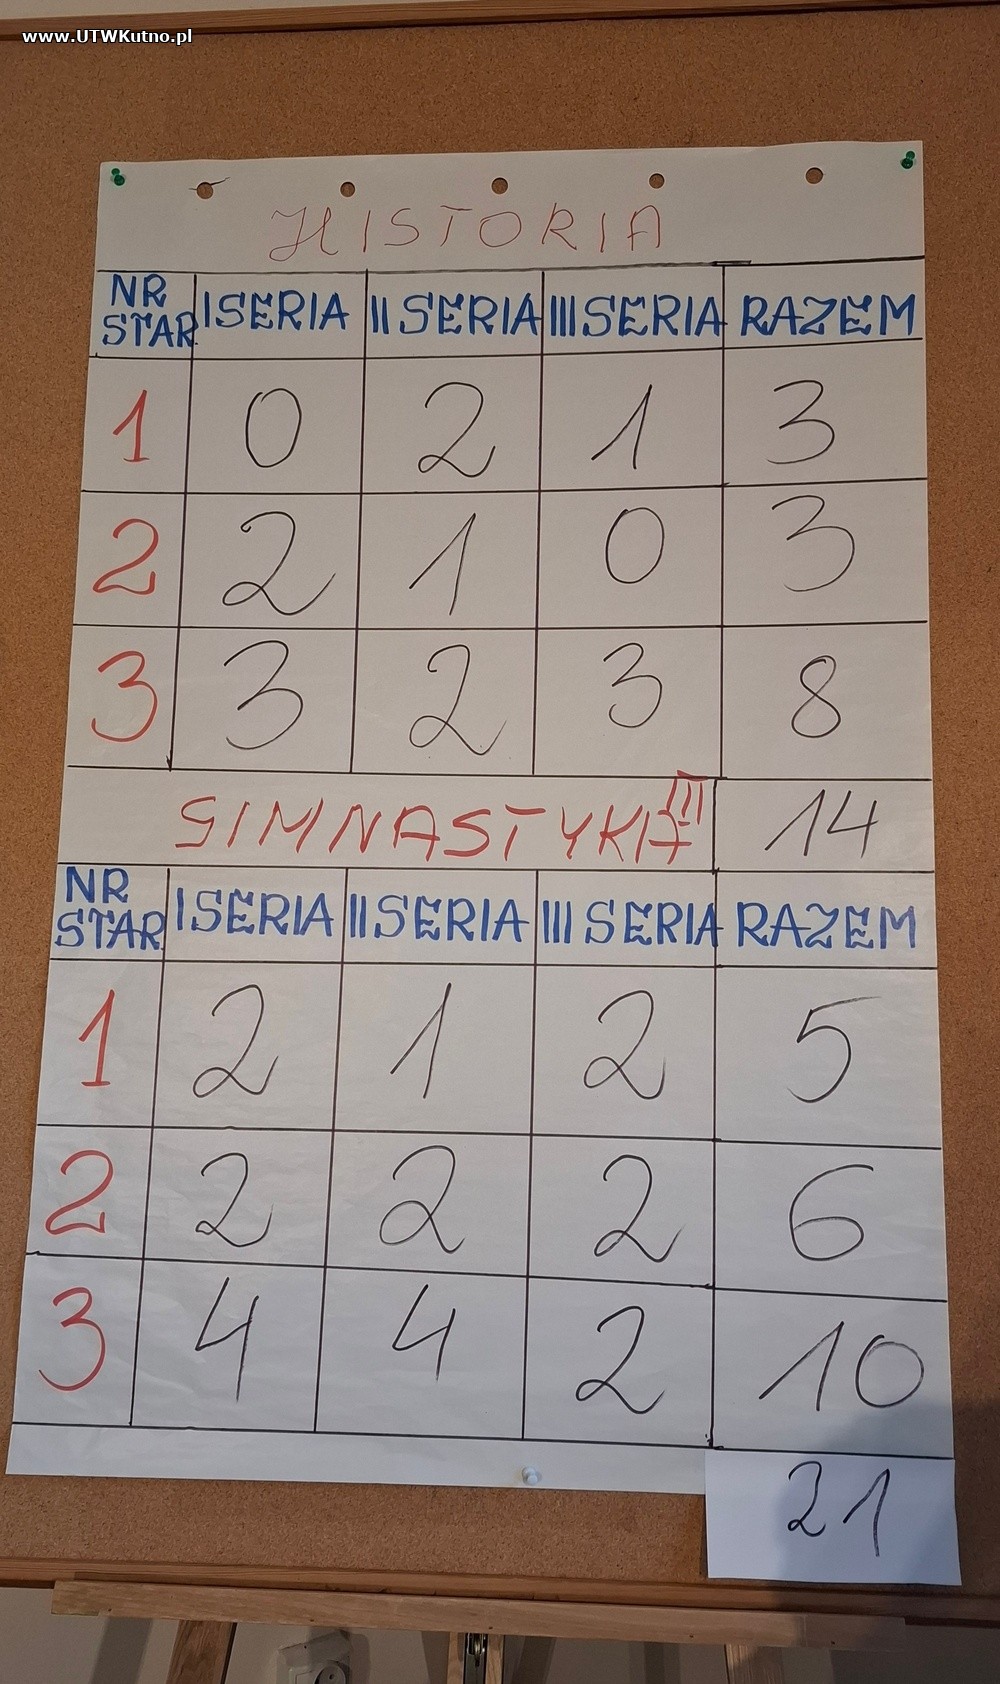 www.UTWKutno.pl
HISTORIA
NR STAR I SERIA II SERIA III SERIA RAZEM
1 0 2 1 3
2 2 1 0 3
3 3 2 3 8
GIMNASTYKA III 14
NR STAR I SERIA II SERIA III SERIA RAZEM
1 2 1 2 5
2 2 2 2 6
3 4 4 2 10
21